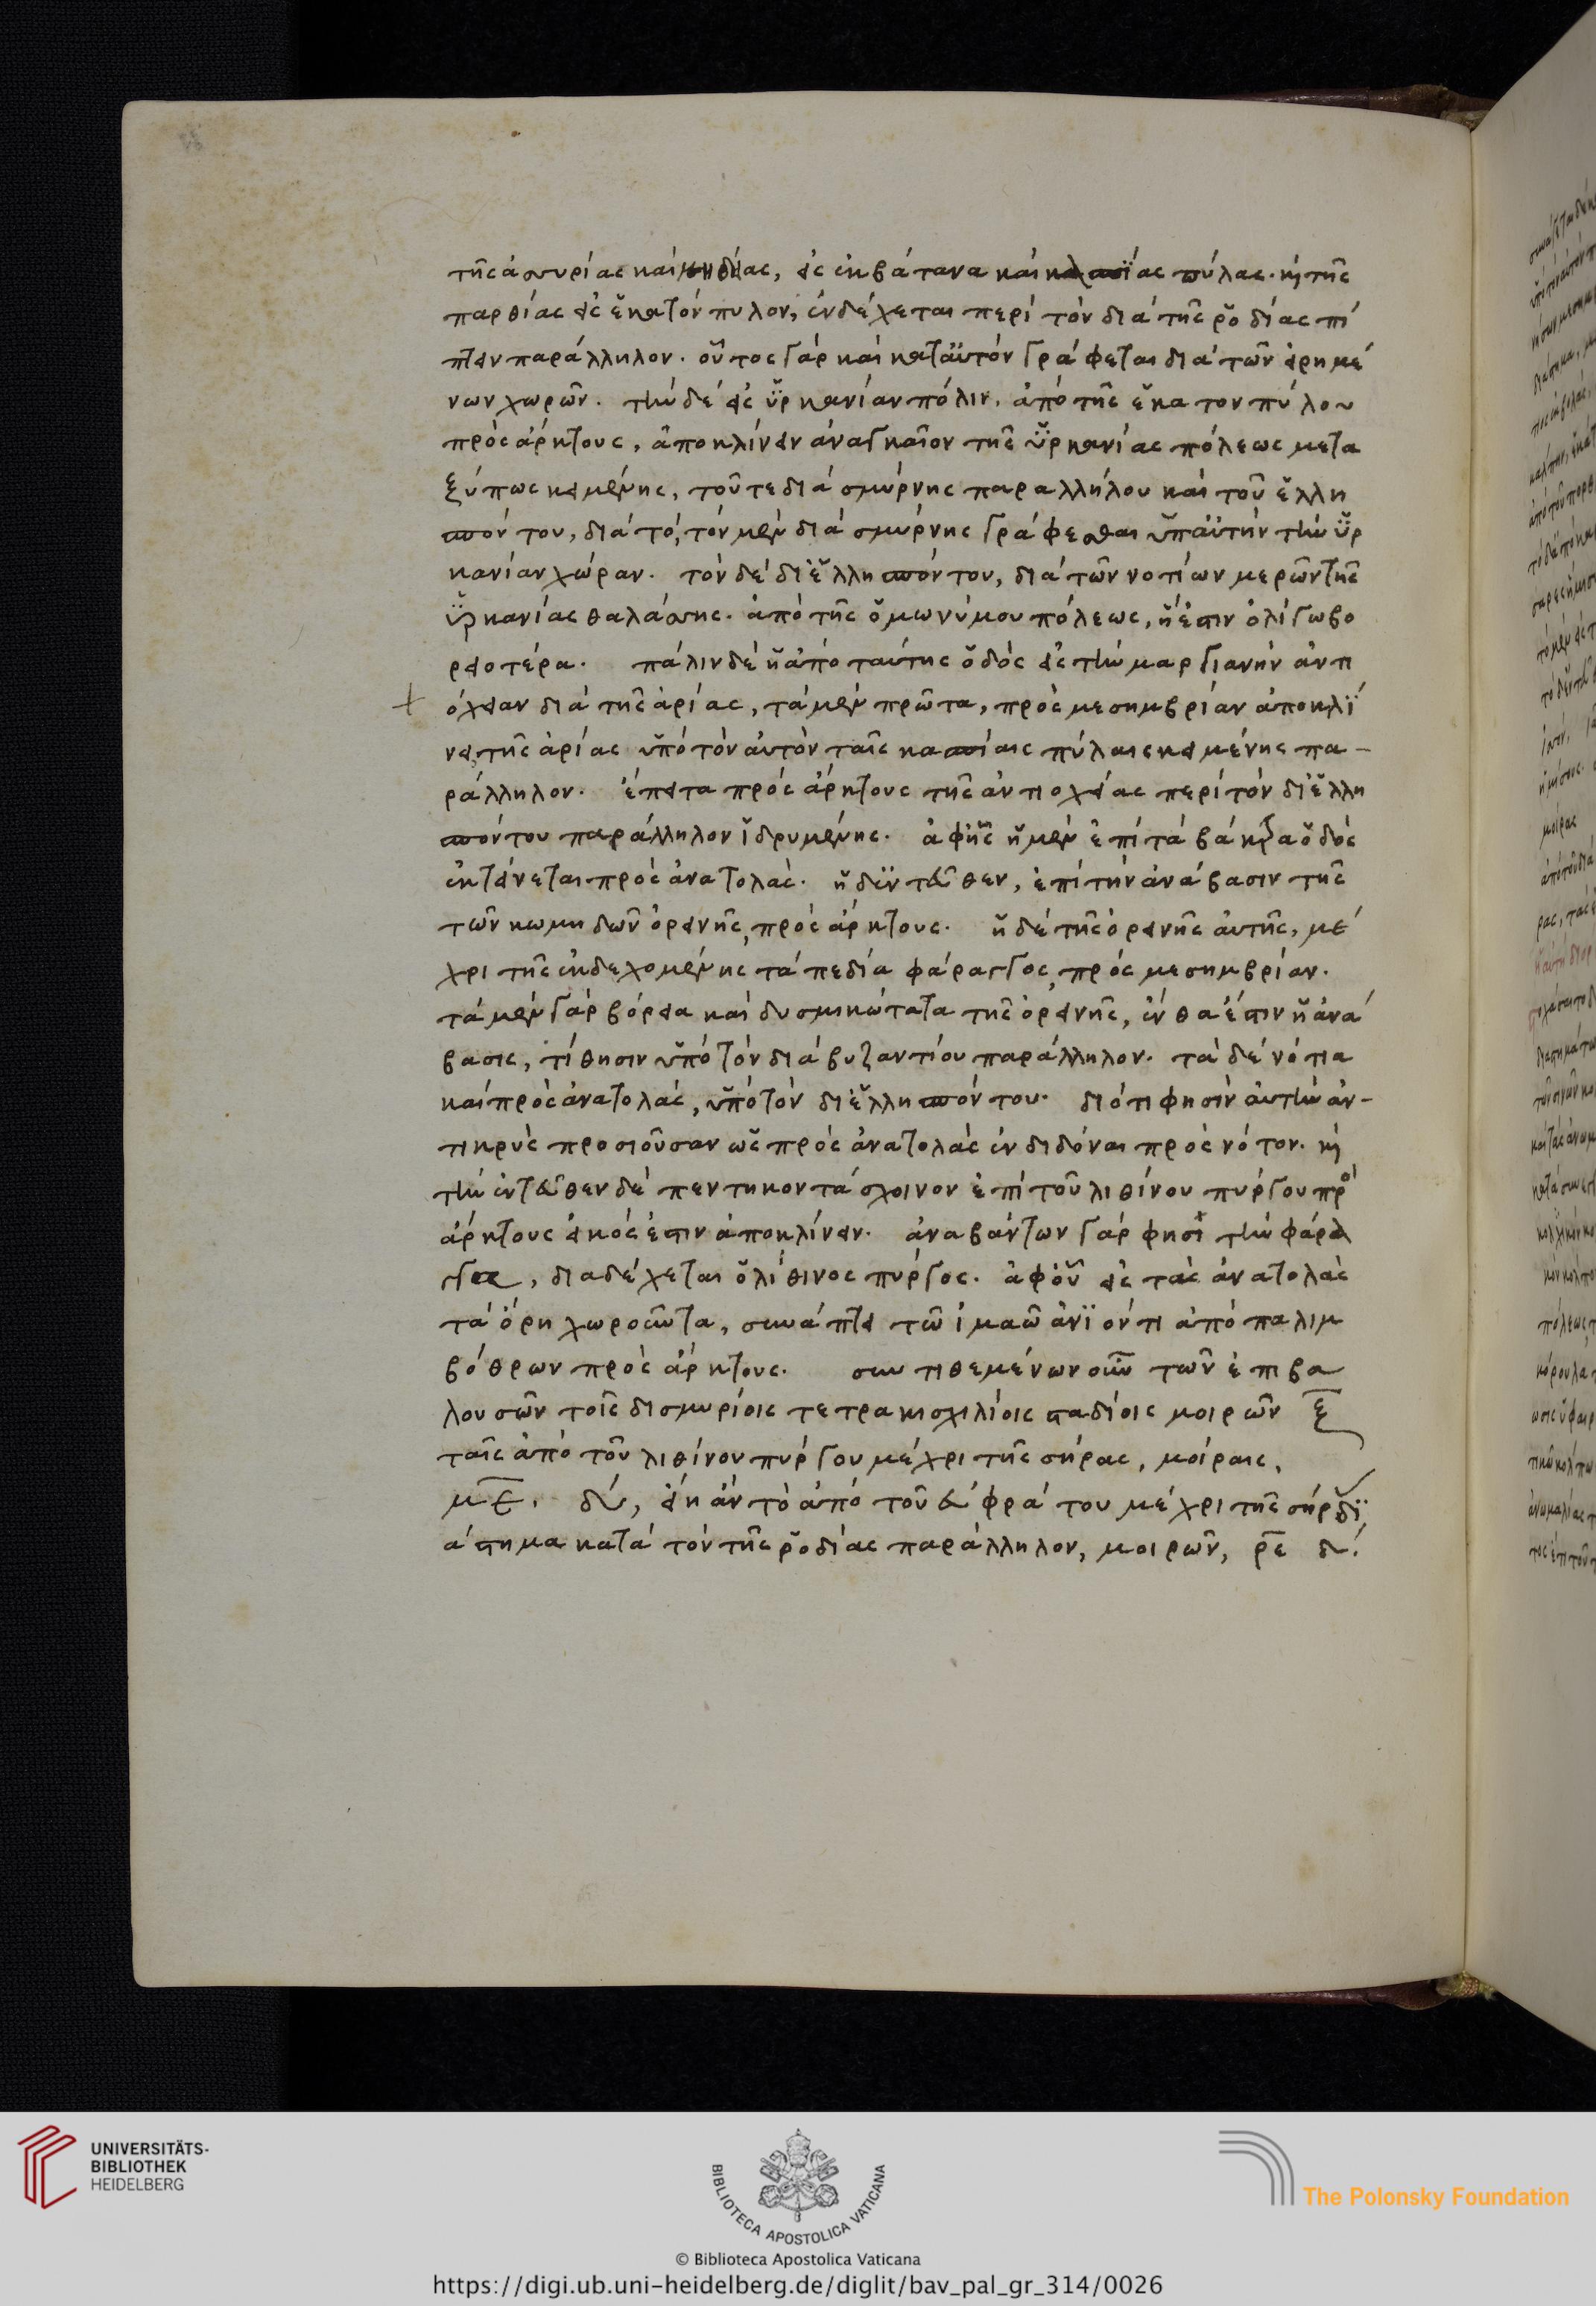 τῆς ἀσσυρίας καὶ μηδίας, εἰς ἐκβάτανα καὶ κασπίας πύλας· καὶ τῆς
παρθίας εἰς ἑκατόνπυλον, ἐνδέχεται περὶ τὸν διὰ τῆς ῥοδίας πί
πτειν παράλληλον. οὗτος γὰρ καὶ κατ' αὐτὸν γράφεται διὰ τῶν εἰρημέ
νων χωρῶν. τὴν δὲ εἰς ὑρκανίαν πόλιν, ἀπὸ τῆς ἑκατονπύλου
πρὸς ἄρκτους, ἀποκλίνειν ἀναγκαῖον τῆς ὑρκανίας πόλεως μετα
ξύ πως κειμένης, τοῦ τε διὰ σμύρνης παραλλήλου καὶ τοῦ ἑλλη
σπόντου, διὰ τὸ, τὸν μὲν διὰ σμύρνης γράφεσθαι ὑπ' αὐτὴν τὴν ὑρ
κανίαν χώραν. τὸν δὲ δι' ἑλλησπόντου, διὰ τῶν νοτίων μερῶν τῆς
ὑρκανίας θαλάσσης. ἀπὸ τῆς ὁμωνύμου πόλεως, ἥ ἐστιν ὀλίγω βο
ρειοτέρα. πάλιν δὲ ἡ ἀπὸ ταύτης ὁδὸς εἰς τὴν μαργιανὴν ἀντι
όχειαν διὰ τῆς ἀρίας, τὰ μὲν πρῶτα, πρὸς μεσημβρίαν ἀποκλί
νει, τῆς ἀρίας ὑπὸ τὸν αὐτὸν ταῖς κασπίαις πύλαις κειμένης πα-
ράλληλον. ἔπειτα πρὸς ἄρκτους τῆς ἀντιοχείας περὶ τὸν δι' ἑλλη
σπόντου παράλληλον ἱδρυμένης. ἀφ' ἧς ἡ μὲν ἐπὶ τὰ βάκτρα ὁδὸς
ἐκτείνεται πρὸς ἀνατολάς. ἡ δ' ἐντεῦθεν, ἐπὶ τὴν ἀνάβασιν τῆς
τῶν κωμηδῶν ὀρεινῆς, πρὸς ἄρκτους. ἡ δὲ τῆς ὀρεινῆς αὐτῆς, μέ
χρι τῆς ἐκδεχομένης τὰ πεδία φάραγγος, πρὸς μεσημβρίαν.
τὰ μὲν γὰρ βόρεια καὶ δυσμικώτατα τῆς ὀρεινῆς, ἔνθα ἐστιν ἡ ἀνά
βασις, τίθησιν ὑπὸ τὸν διὰ βυζαντίου παράλληλον. τὰ δὲ νότια
καὶ πρὸς ἀνατολάς, ὑπὸ τὸν δι' ἑλλησπόντου. διότι φησὶν αὐτὴν ἀν-
τικρὺς προσιοῦσαν ὡς πρὸς ἀνατολὰς ἐνδιδόναι πρὸς νότον. καὶ
τὴν ἐντεῦθεν δὲ πεντηκοντάσχοινον ἐπὶ τοῦ λιθίνου πύργου πρὸ
ἄρκτους εἰκός ἐστιν ἀποκλίνειν. ἀναβάντων γάρ φησι τὴν φάρα
γγα, διαδέχεται ὁ λίθινος πύργος. ἀφ' οὗ εἰς τὰς ἀνατολὰς
τὰ ὄρη χωροῦντα, συνάπτει τῶ ἰμαῶ ἀνϊόντι ἀπὸ παλιμ
βόθρων πρὸς ἄρκτους. συντιθεμένων οὖν τῶν ἐπιβα
λουσῶν τοῖς δισμυρίοις τετρακισχιλίοις σταδίοις μοιρῶν ξ
ταῖς ἀπὸ τοῦ λιθίνου πύργου μέχρι τῆς σήρας, μοίραις,
με. δ, εἴη ἂν τὸ ἀπὸ τοῦ εὐφράτου μέχρι τῆς σήρας δι
άστημα κατὰ τὸν τῆς ῥοδίας παράλληλον, μοιρῶν, ρε δ.
UNIVERSITÄTS-
BIBLIOTHEK
HEIDELBERG
BIBLIOTECA APOSTOLICA VATICANA
The Polonsky Foundation
© Biblioteca Apostolica Vaticana
https://digi.ub.uni-heidelberg.de/diglit/bav_pal_gr_314/0026